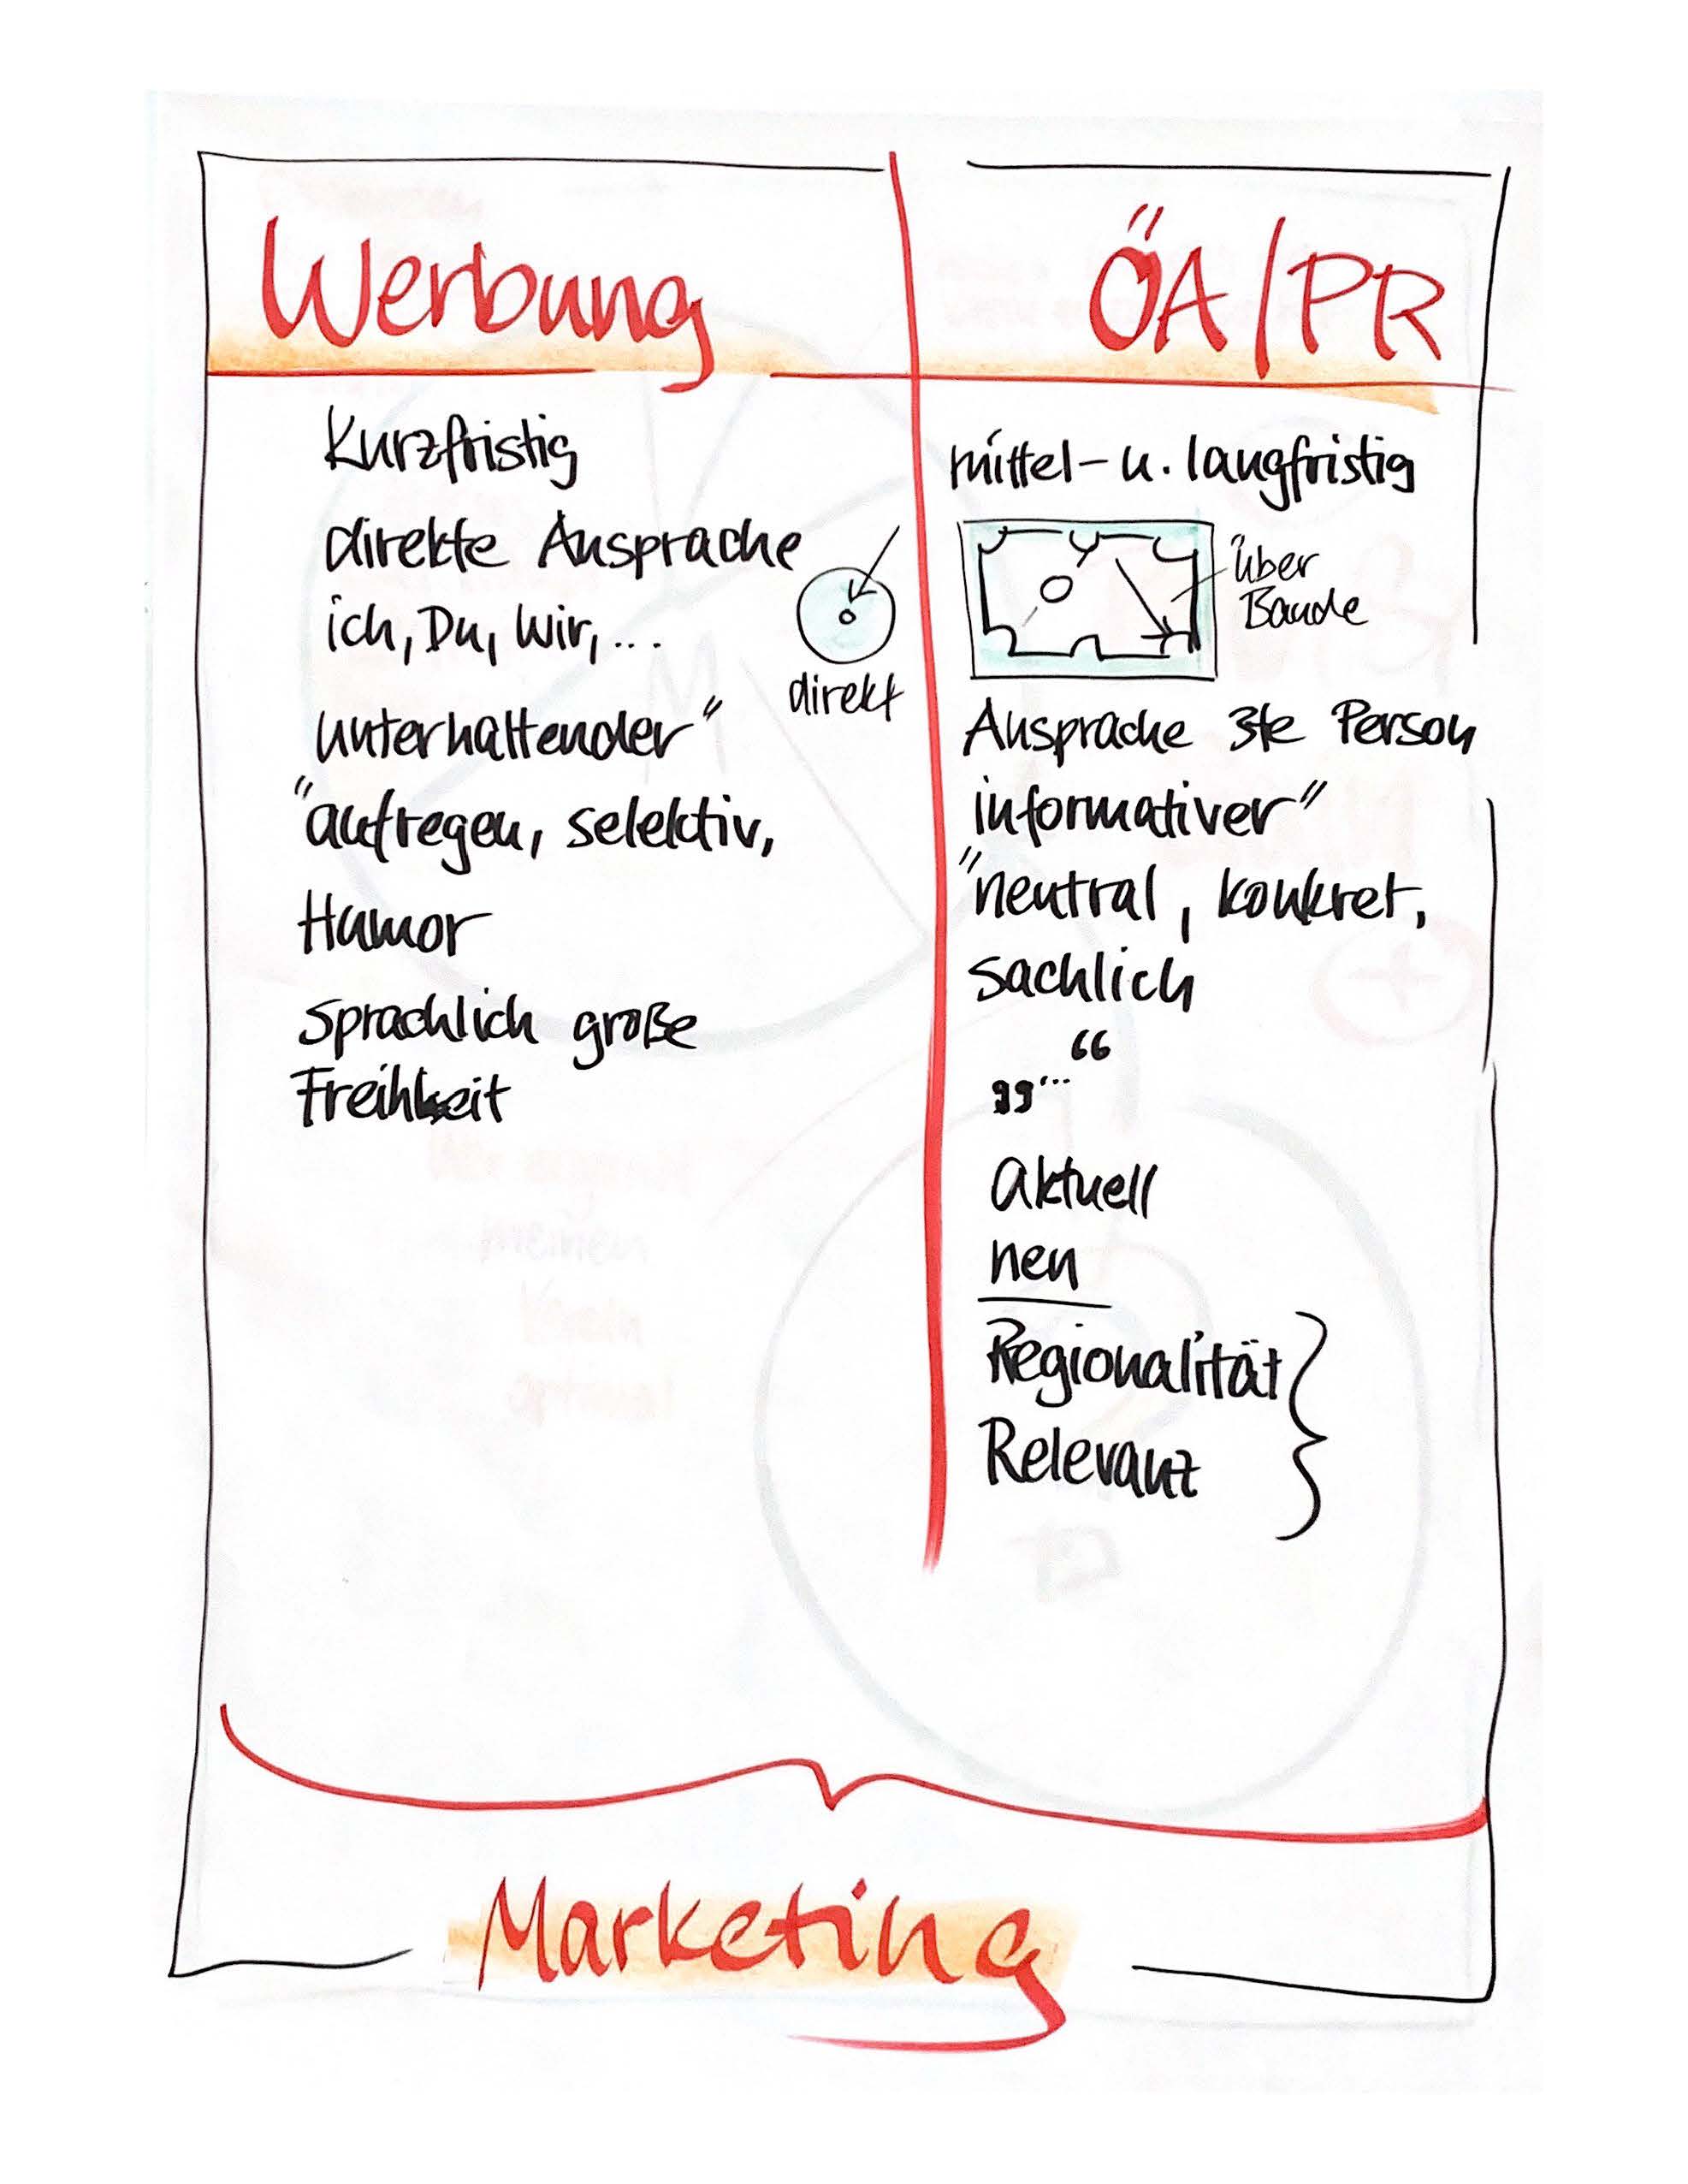 Werbung
Kurzfristig
direkte Ansprache
ich, Du, Wir, ...
direkt
unterhaltender"
"aufregen, selektiv,
Humor
sprachlich große
Freihheit
ÖA/PR
mittel- u. langfristig
über
Bande
Ansprache 3te Person
informativer"
"neutral, konkret,
sachlich
„..."
Aktuell
neu
Regionalität
Relevanz
Marketing